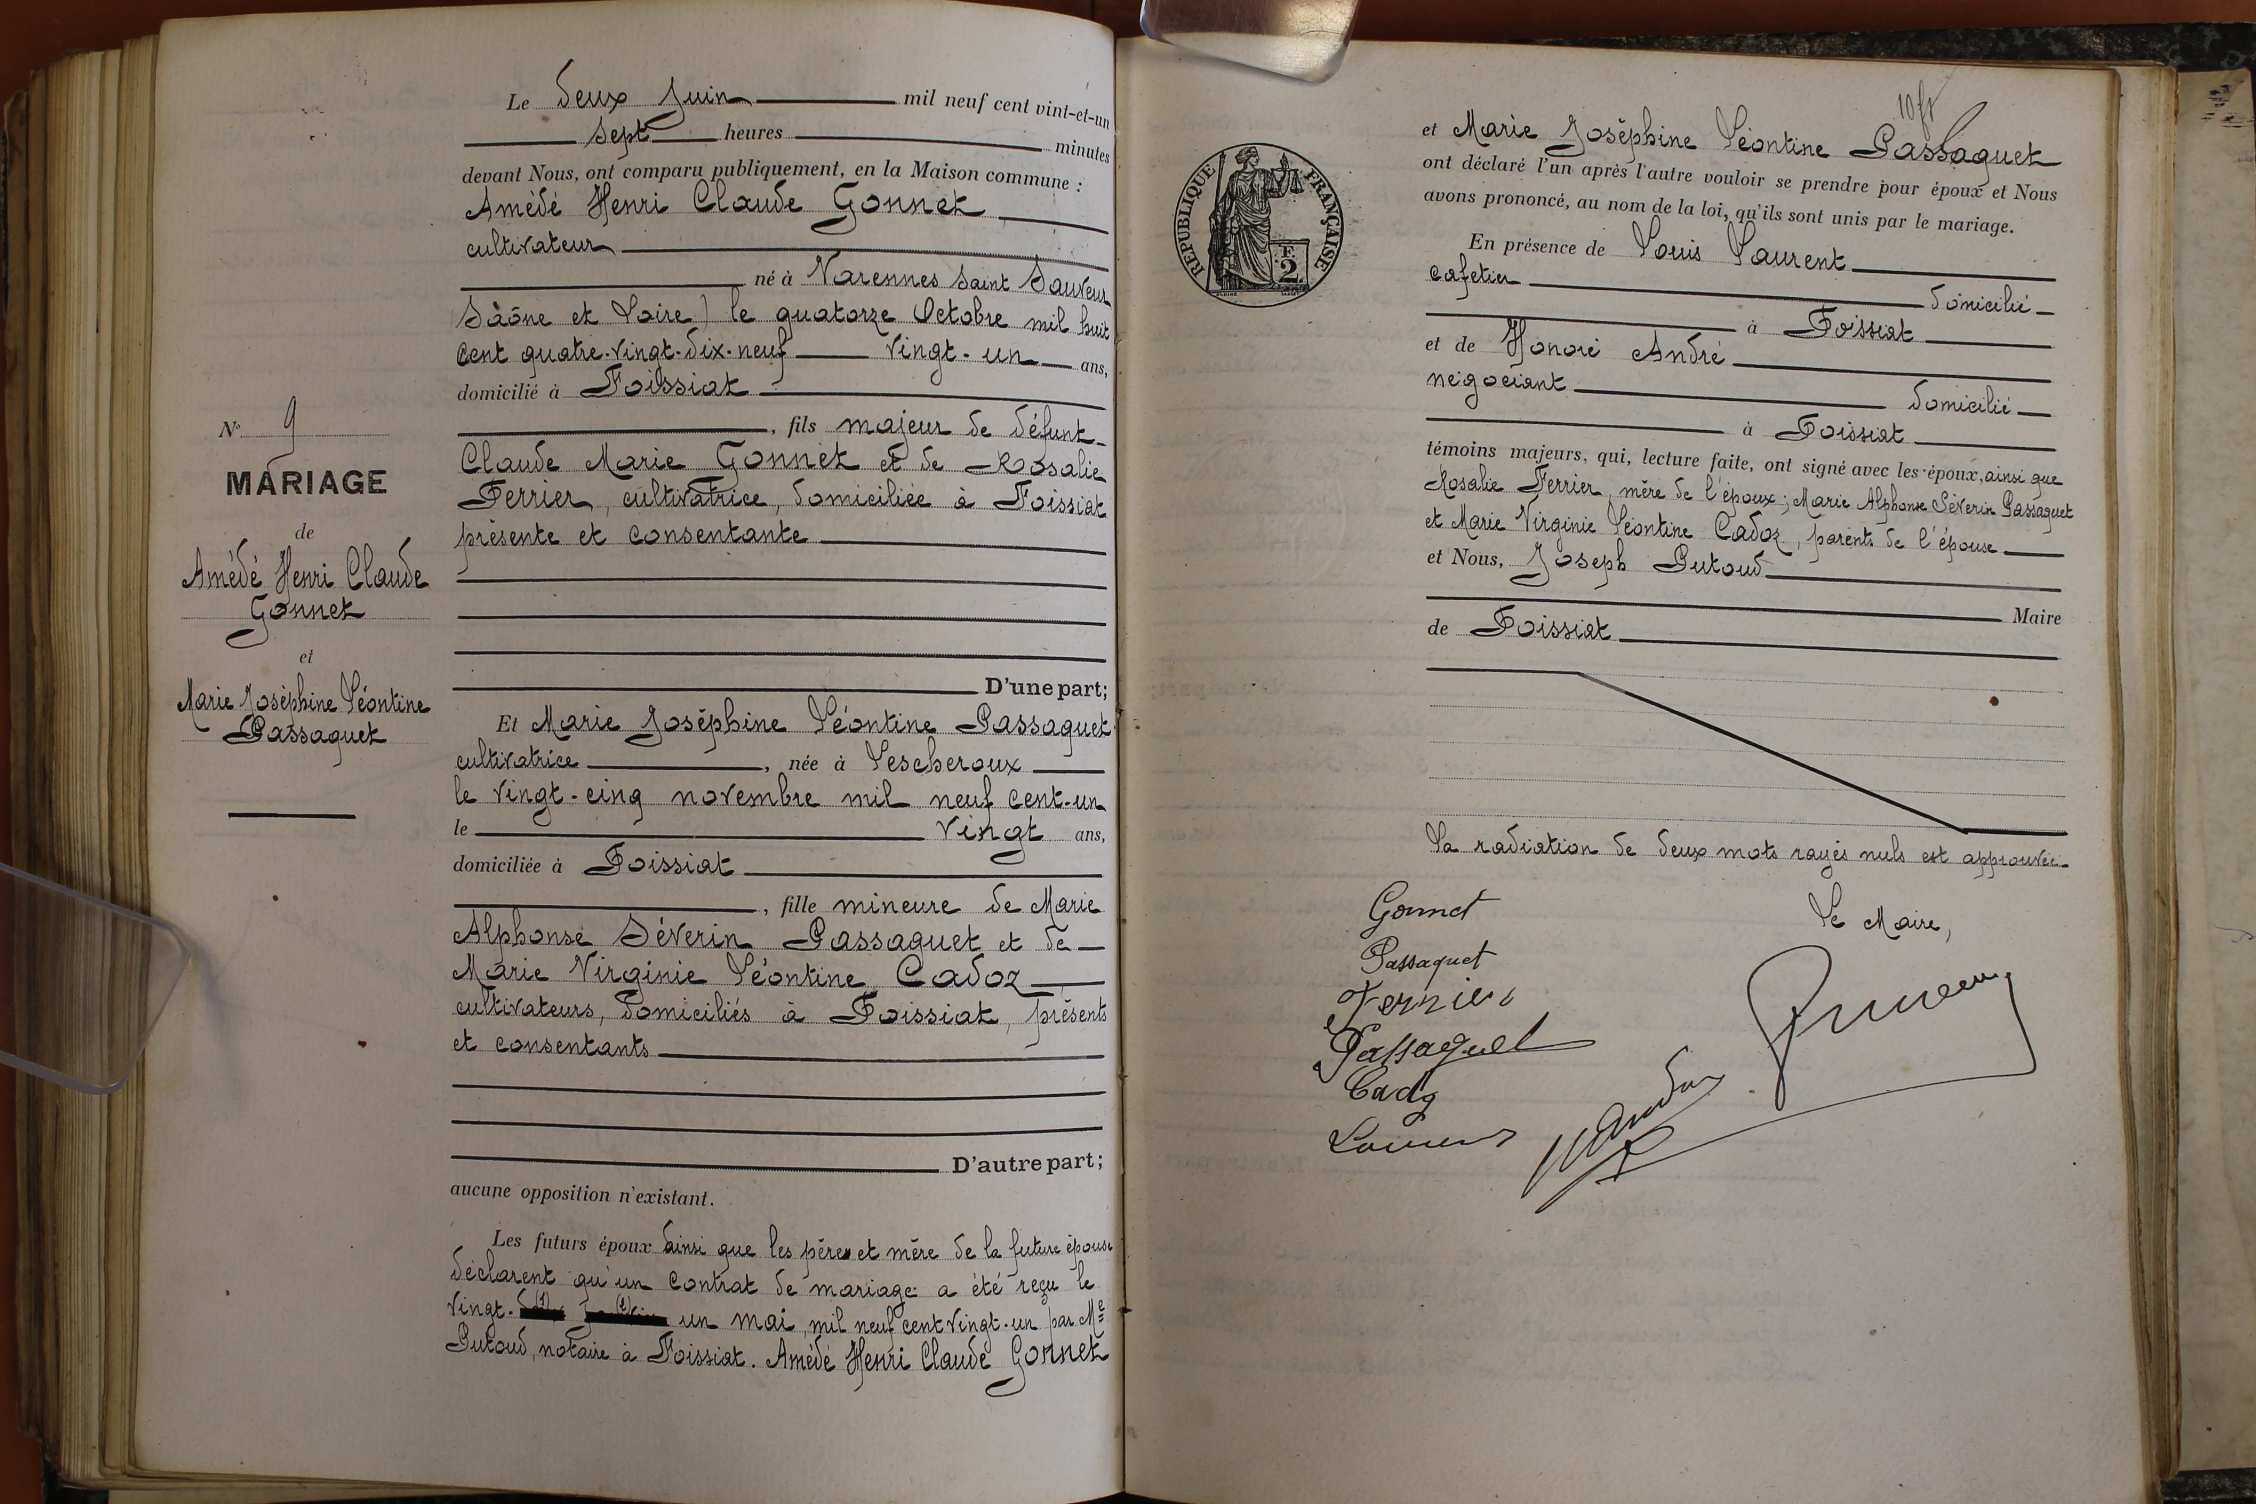 Le deux Juin mil neuf cent vint-et-un
sept heures minutes
devant Nous, ont comparu publiquement, en la Maison commune :
Amédé Henri Claude Gonnet
cultivateur
né à Varennes Saint Sauveur
Saône et Loire) le quatorze Octobre mil huit
cent quatre-vingt-dix-neuf vingt-un ans,
domicilié à Foissiat
, fils majeur de défunt
Claude Marie Gonnet et de Rosalie
Ferrier, cultivatrice, domiciliée à Foissiat
présente et consentante
D'une part;
Et Marie Joséphine Léontine Passaquet
cultivatrice, née à Lescheroux
le vingt-cinq novembre mil neuf cent-un
le vingt ans,
domiciliée à Foissiat
, fille mineure de Marie
Alphonse Séverin Passaquet et de
Marie Virginie Léontine Cadoz
cultivateurs, domiciliés à Foissiat, présents
et consentants
D'autre part;
aucune opposition n'existant.
Les futurs époux ainsi que les père et mère de la future épouse
déclarent qu'un contrat de mariage a été reçu le
vingt- un mai, mil neuf cent vingt-un par Me
Putoud, notaire à Foissiat. Amédé Henri Claude Gonnet
N° 9
MARIAGE
de
Amédé Henri Claude
Gonnet
et
Marie Joséphine Léontine
Passaquet
10 fr
RÉPUBLIQUE FRANÇAISE
F.
2
et Marie Joséphine Léontine Passaquet
ont déclaré l'un après l'autre vouloir se prendre pour époux et Nous
avons prononcé, au nom de la loi, qu'ils sont unis par le mariage.
En présence de Louis Laurent
cafetier domicilié
à Foissiat
et de Honoré André
négociant domicilié
à Foissiat
témoins majeurs, qui, lecture faite, ont signé avec les époux, ainsi que
Rosalie Ferrier, mère de l'époux; Marie Alphonse Séverin Passaquet
et Marie Virginie Léontine Cadoz, parents de l'épouse
et Nous, Joseph Putoud
Maire
de Foissiat
La radiation de deux mots rayés nuls est approuvée
Le Maire,
Gonnet
Passaquet
Ferrier
Passaquet
Cadoz
Laurent